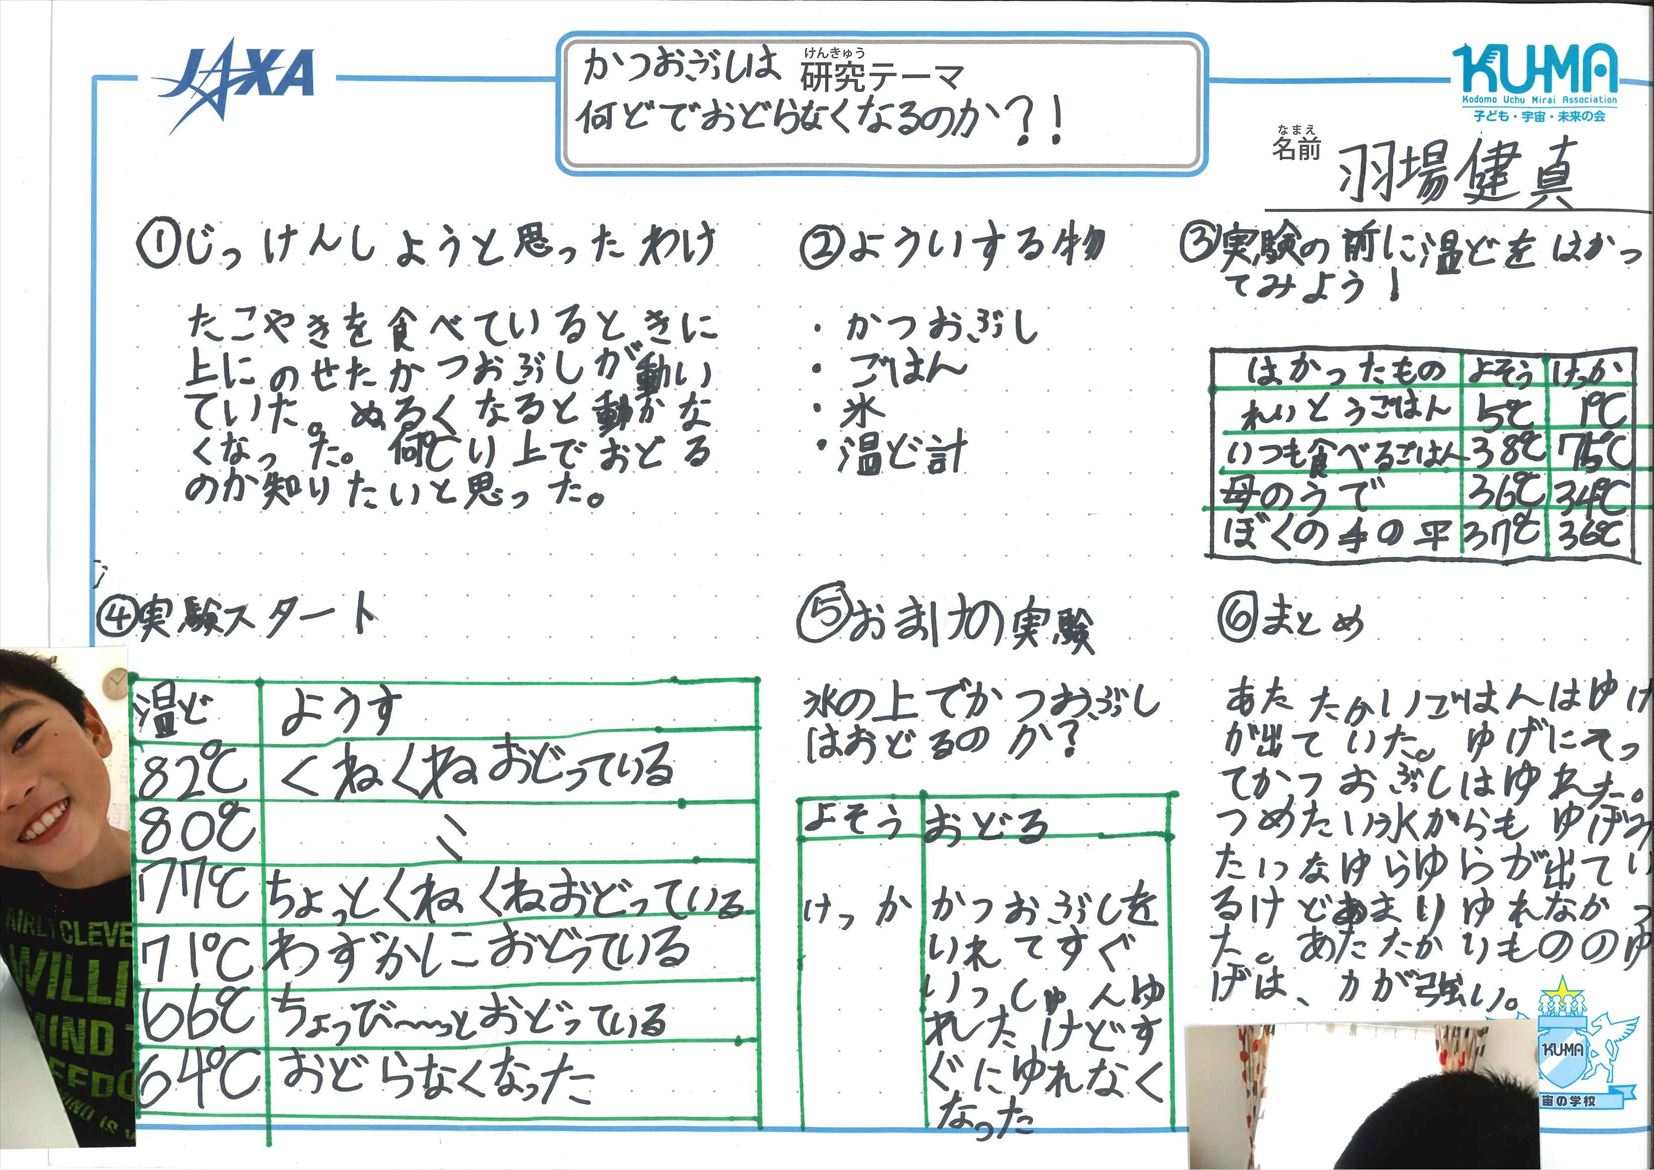 JAXA
けんきゅう
かつおぶしは 研究テーマ
何どでおどらなくなるのか?!
KU-MA
Kodomo Uchu Mirai Association
子ども・宇宙・未来の会
なまえ
名前 羽場健真
①じっけんしようと思ったわけ
たこやきを食べているときに
上にのせたかつおぶしが動い
ていた。ぬるくなると動かな
くなった。何℃以上でおどる
のか知りたいと思った。
②よういする物
・かつおぶし
・ごはん
・氷
・温ど計
③実験の前に温どをはかっ
てみよう!
はかったもの よそう けっか
れいとうごはん 5℃ 1℃
いつも食べるごはん 38℃ 75℃
母のうで 36℃ 34℃
ぼくの手の平 37℃ 36℃
④実験スタート
温ど ようす
82℃ くねくねおどっている
80℃ 〃
77℃ ちょっとくねくねおどっている
71℃ わずかにおどっている
66℃ ちょっび〜っとおどっている
64℃ おどらなくなった
⑤おまけの実験
氷の上でかつおぶし
はおどるのか?
よそう おどる
けっか かつおぶしを
いれてすぐ
いっしゅんゆ
れたけどす
ぐにゆれなく
なった
⑥まとめ
あたたかいごはんはゆげ
が出ていた。ゆげにそっ
てかつおぶしはゆれた。
つめたい氷からもゆげみ
たいなゆらゆらが出てい
るけどあまりゆれなかっ
た。あたたかいもののゆ
げは、力が強い。
KUMA
宙の学校
AIRL CLEVE
WILLI
MIND T
EEDO
MIND IS